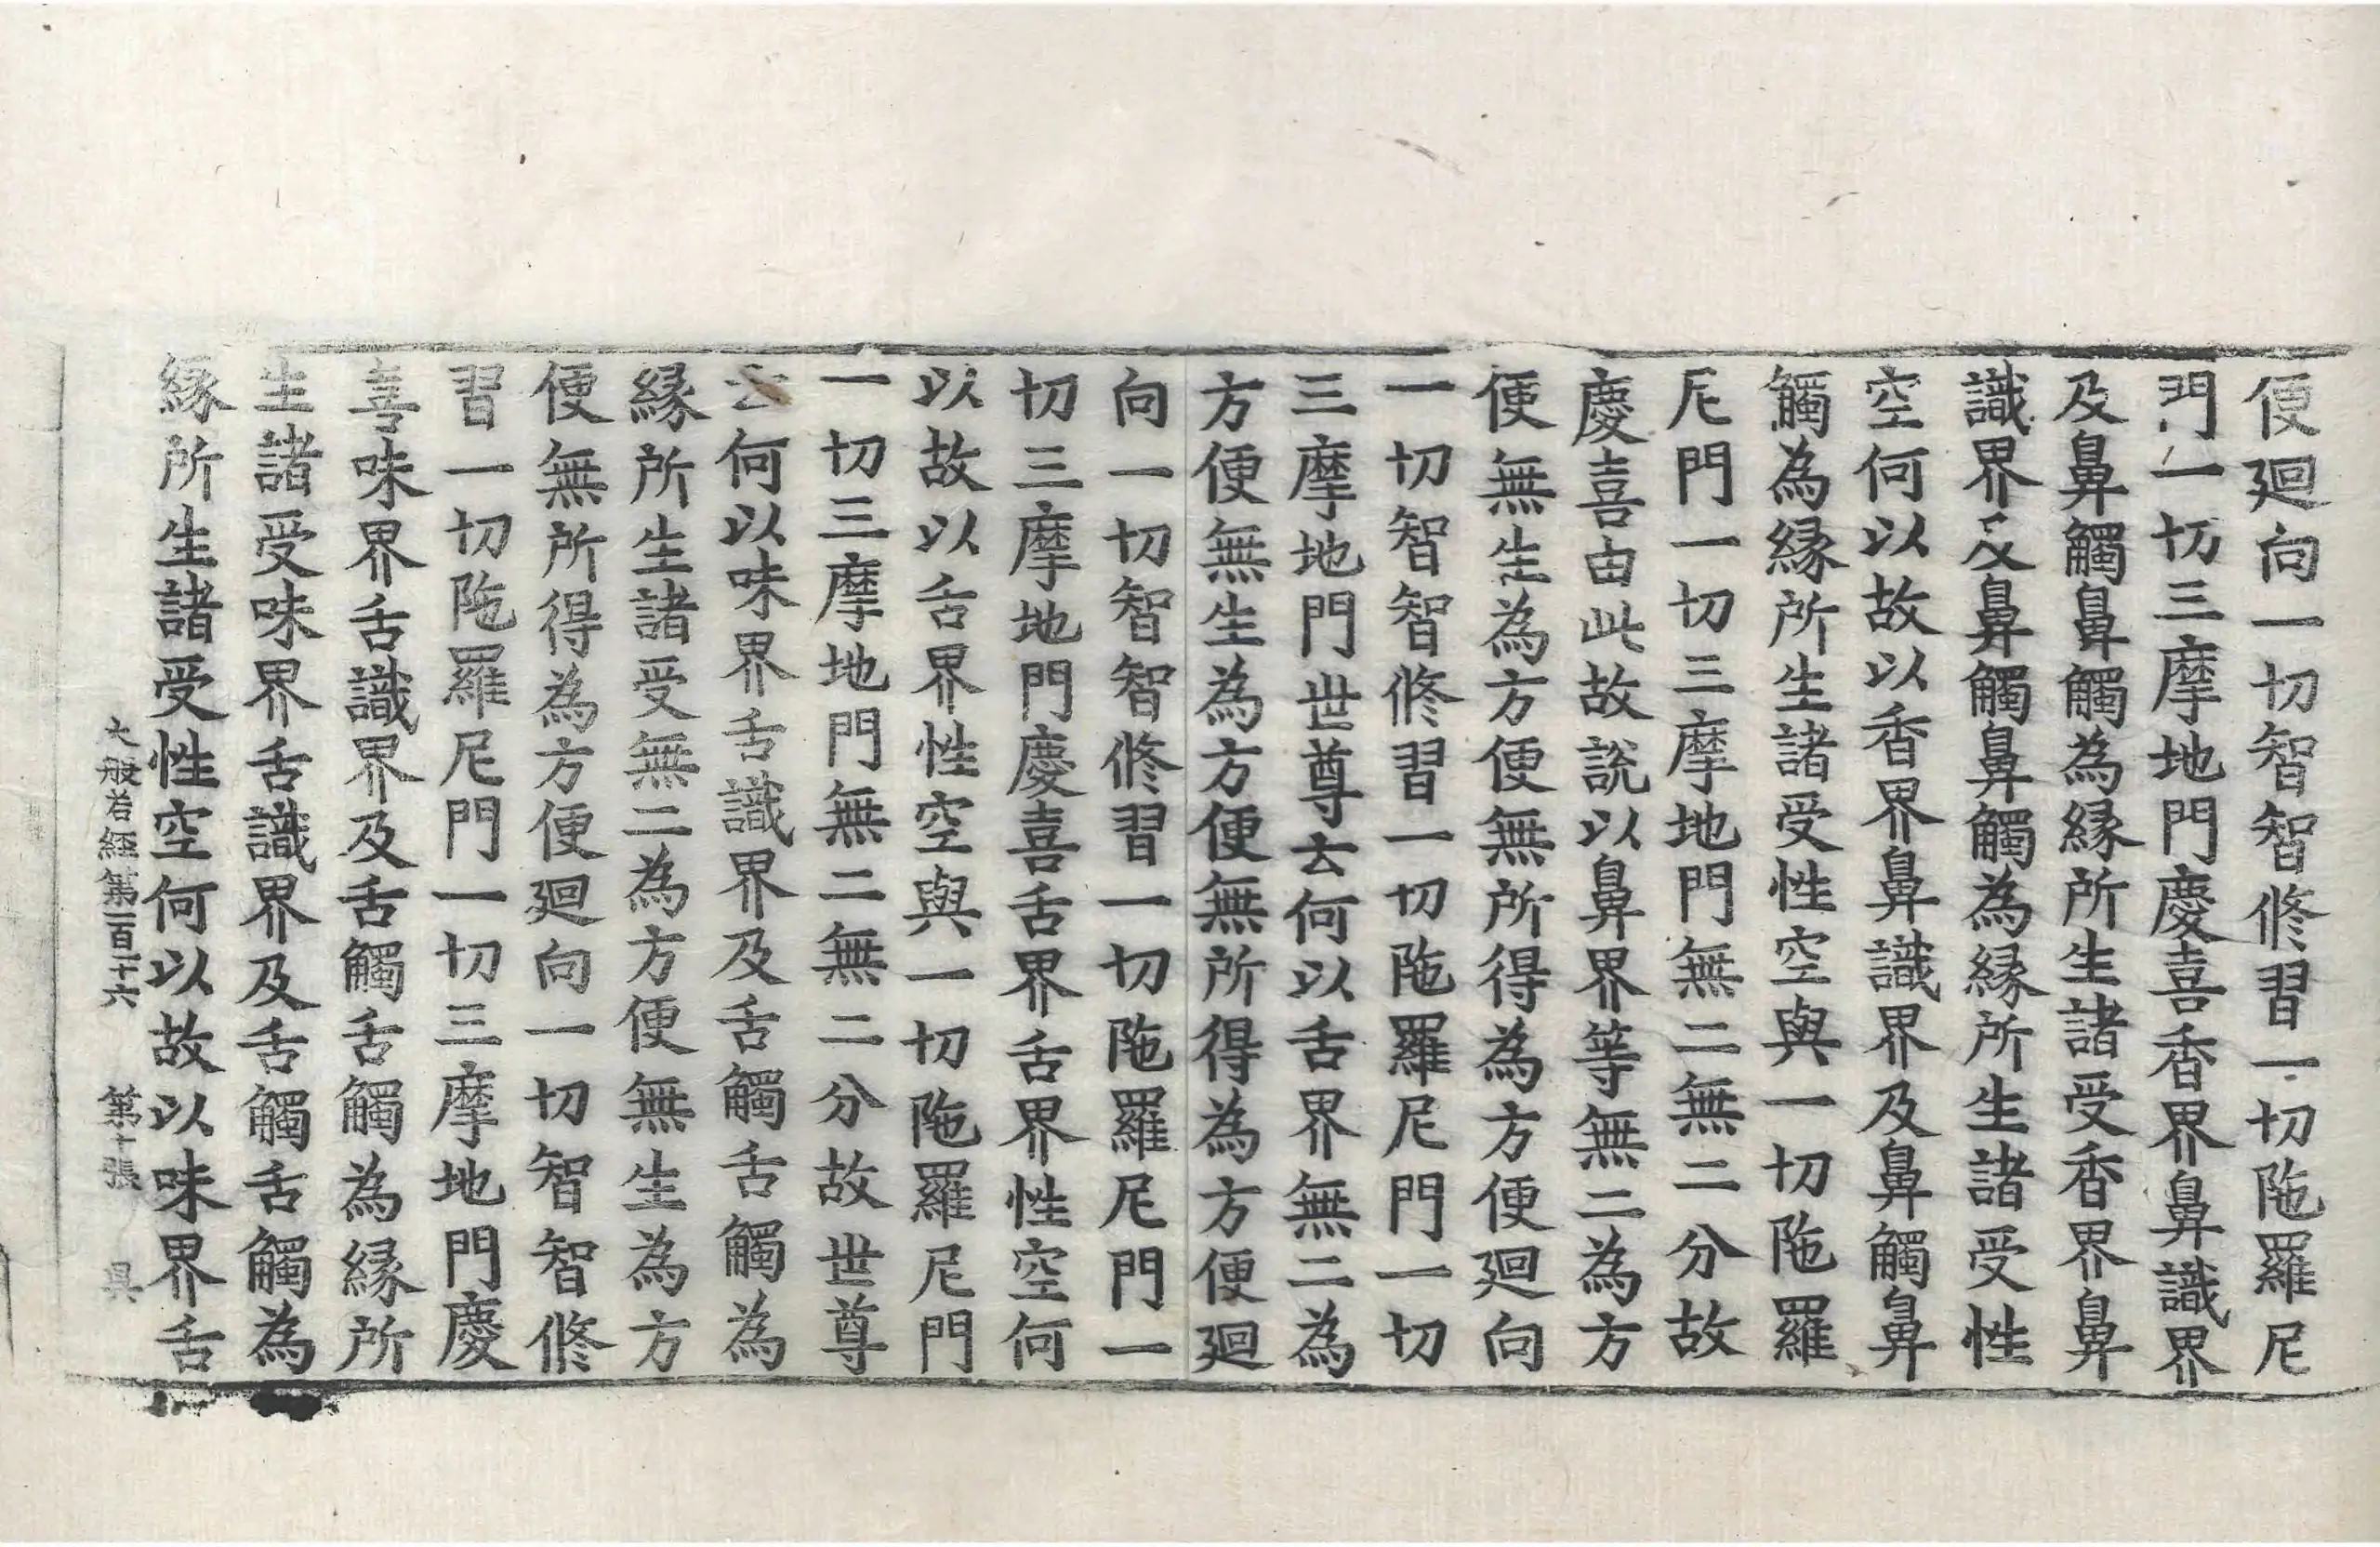 便廻向一切智智修習一切陁羅尼
門一切三摩地門慶喜香界鼻識界
及鼻觸鼻觸為緣所生諸受香界鼻
識界及鼻觸鼻觸為緣所生諸受性
空何以故以香界鼻識界及鼻觸鼻
觸為緣所生諸受性空與一切陁羅
尼門一切三摩地門無二無二分故
慶喜由此故說以鼻界等無二為方
便無生為方便無所得為方便廻向
一切智智修習一切陁羅尼門一切
三摩地門世尊云何以舌界無二為
方便無生為方便無所得為方便廻
向一切智智修習一切陁羅尼門一
切三摩地門慶喜舌界舌界性空何
以故以舌界性空與一切陁羅尼門
一切三摩地門無二無二分故世尊
云何以味界舌識界及舌觸舌觸為
緣所生諸受無二為方便無生為方
便無所得為方便廻向一切智智修
習一切陁羅尼門一切三摩地門慶
喜味界舌識界及舌觸舌觸為緣所
生諸受味界舌識界及舌觸舌觸為
緣所生諸受性空何以故以味界舌
大般若經第一百二十六 第十張 昃